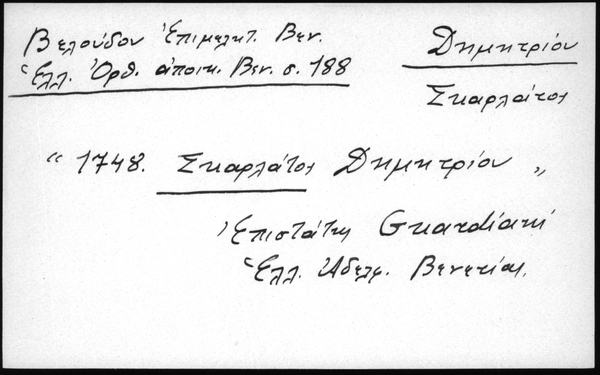 Βελούδου Ἐπιμελητ. Βεν.
Ἑλλ. Ὀρθ. ἀποικ. Βεν. σ. 188
Δημητρίου
Σκαρλάτος
" 1748. Σκαρλάτος Δημητρίου "
Ἐπιστάτης Guardiani
Ἑλλ. Ἀδελφ. Βενετίας.